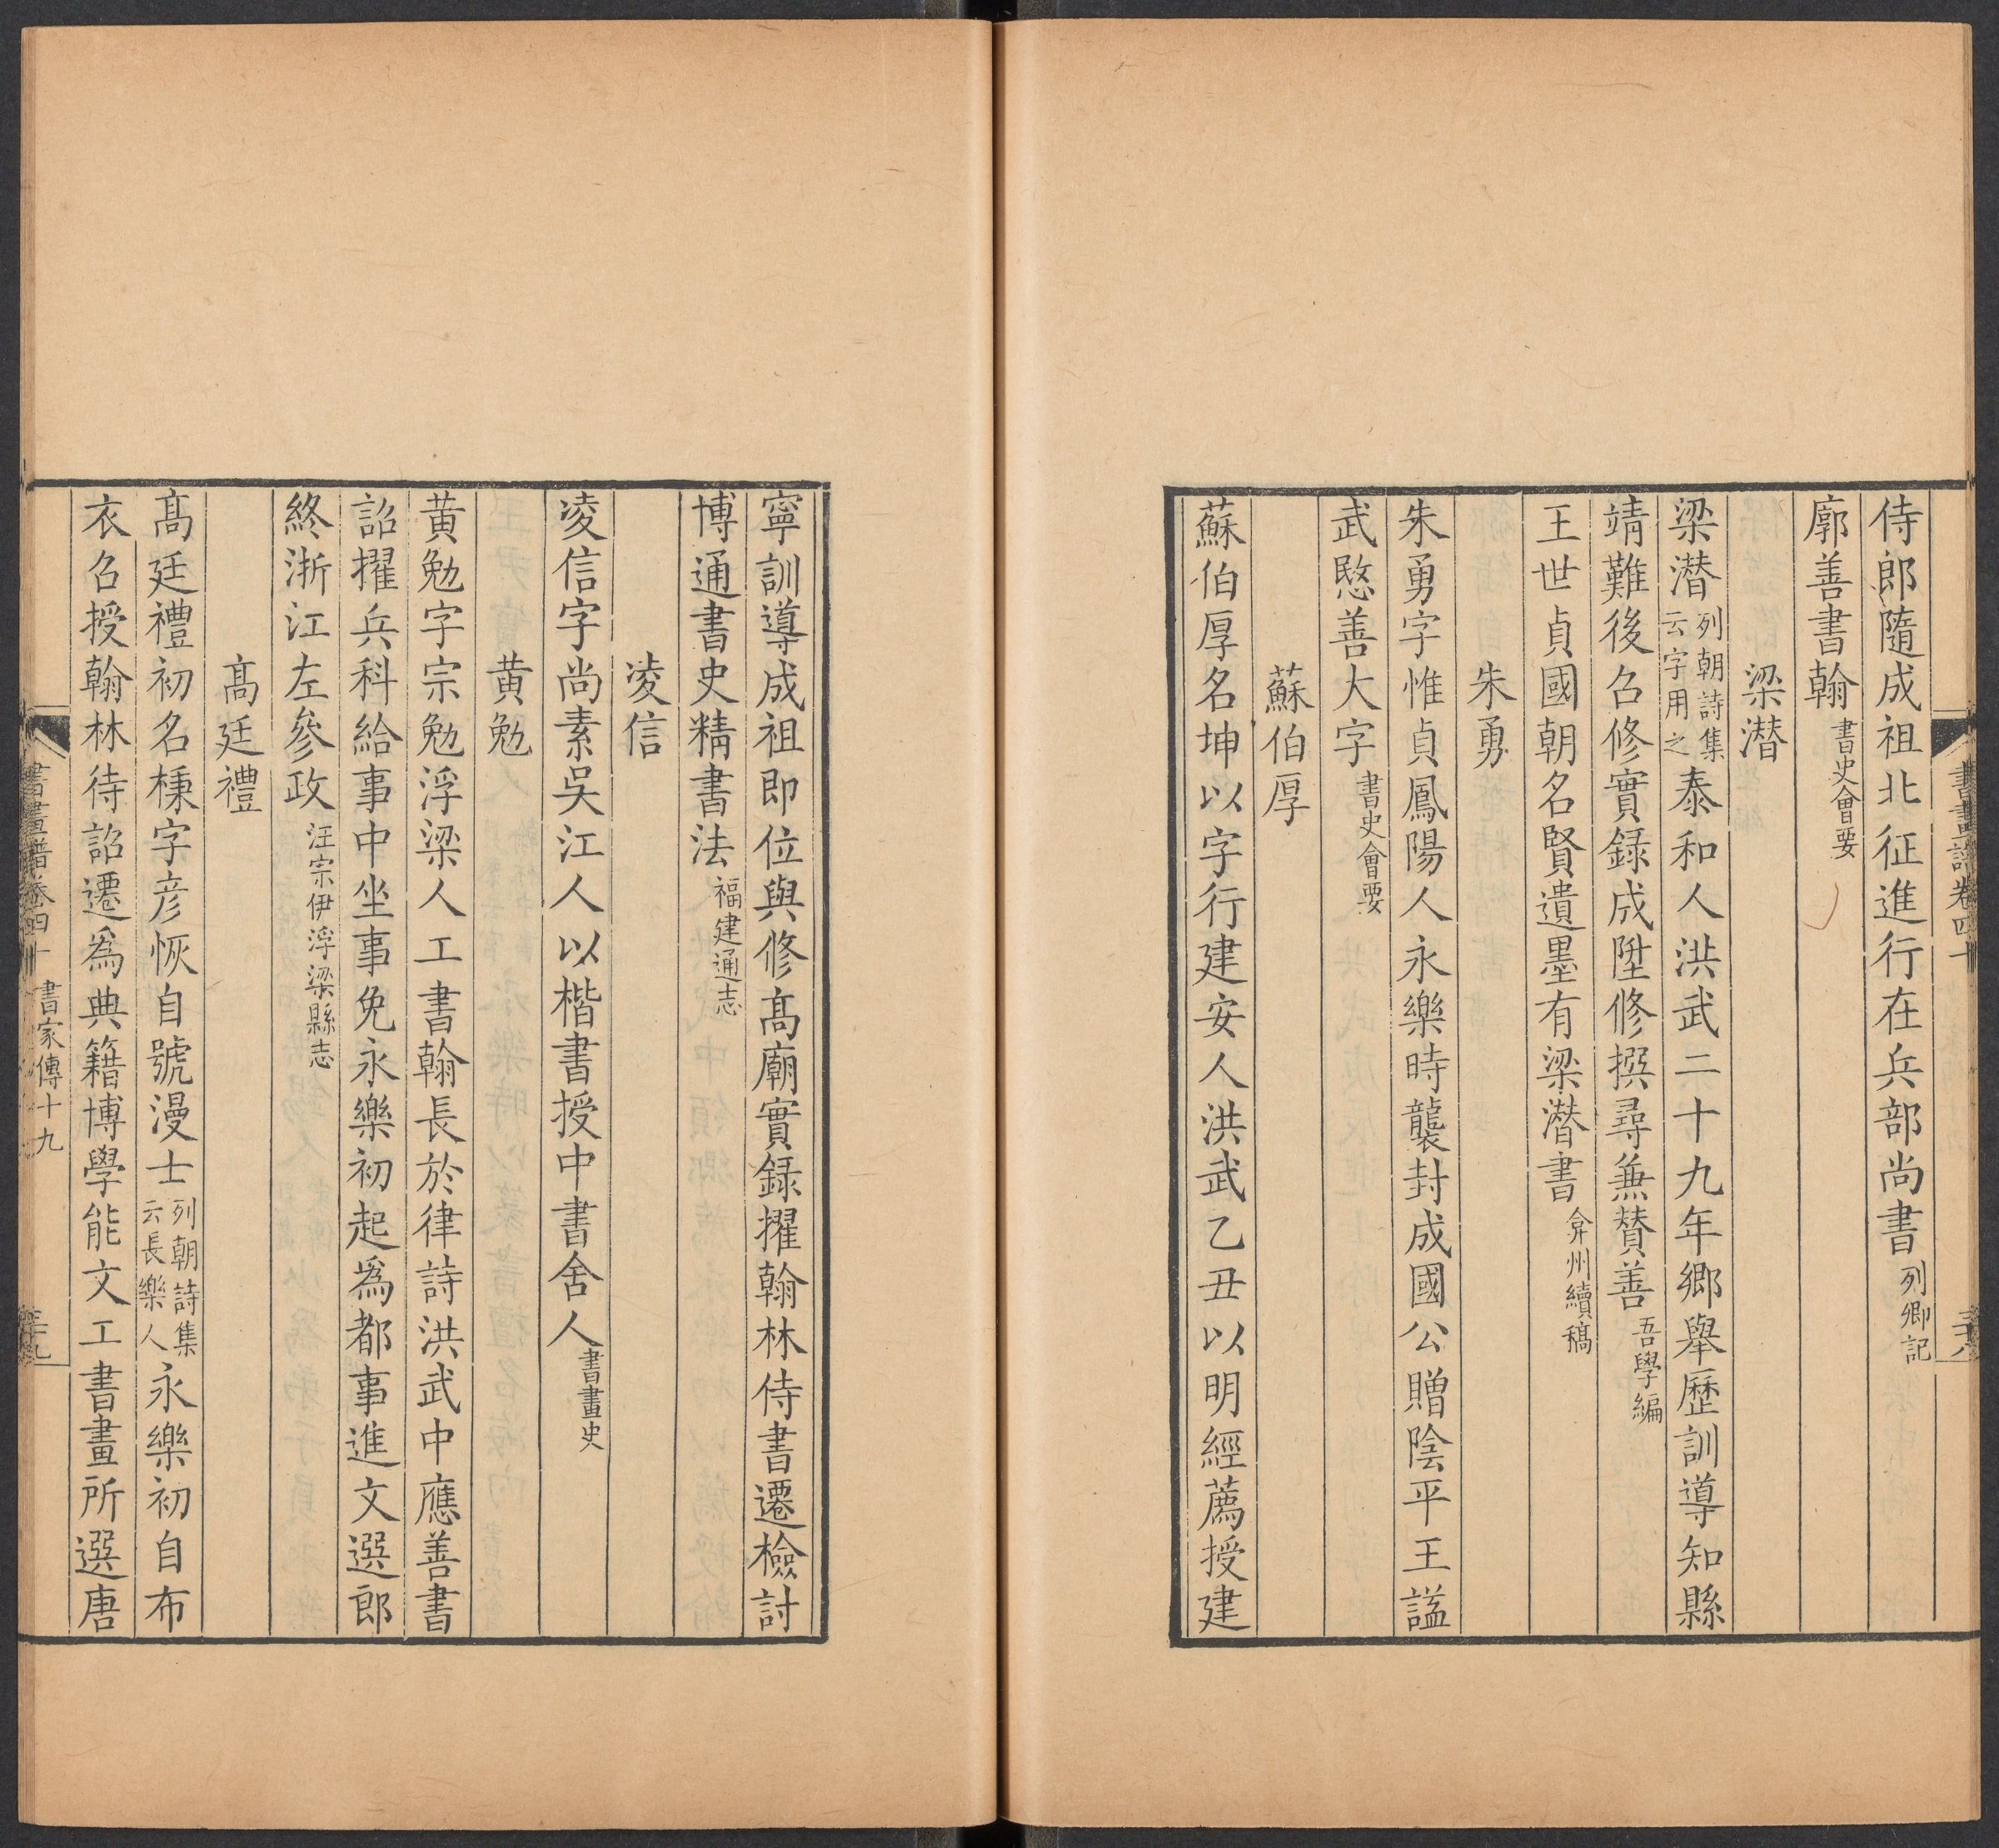 書畫譜卷四十
侍郎隨成祖北征進行在兵部尚書列卿記
廓善書翰書史會要
梁潜
梁潜列朝詩集云字用之泰和人洪武二十九年鄉舉歷訓導知縣
靖難後召修實録成陞修撰尋兼賛善吾學編
王世貞國朝名賢遺墨有梁潜書弇州續稿
朱勇
朱勇字惟貞鳳陽人永樂時襲封成國公贈隂平王謚
武愍善大字書史會要
蘇伯厚
蘇伯厚名坤以字行建安人洪武乙丑以明經薦授建
寧訓導成祖即位與修髙廟實録擢翰林侍書遷檢討
博通書史精書法福建通志
凌信
凌信字尚素吳江人以楷書授中書舍人書畫史
黄勉
黄勉字宗勉浮梁人工書翰長於律詩洪武中應善書
詔擢兵科給事中坐事免永樂初起爲都事進文選郎
終浙江左參政汪宗伊浮梁縣志
髙廷禮
髙廷禮初名棅字彦恢自號漫士列朝詩集云長樂人永樂初自布
衣召授翰林待詔遷爲典籍博學能文工書畫所選唐
書畫譜卷四十 書家傳十九